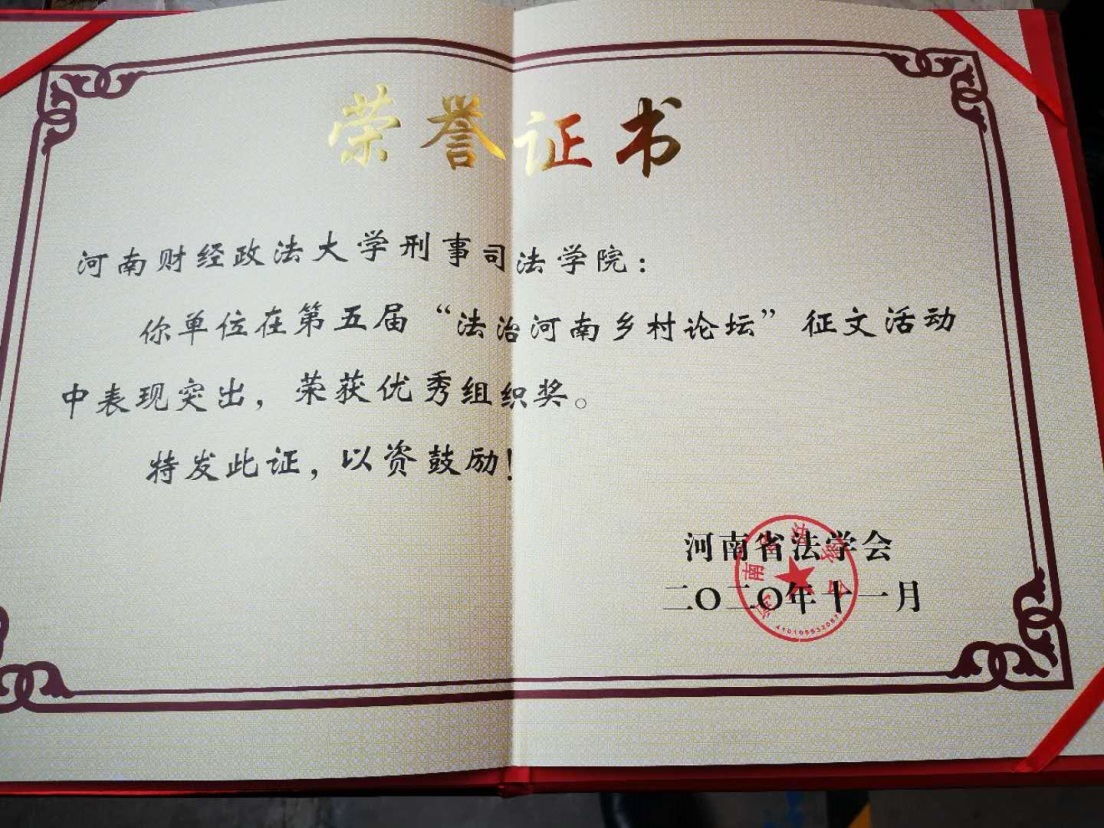 荣誉证书
河南财经政法大学刑事司法学院：
你单位在第五届“法治河南乡村论坛”征文活动
中表现突出，荣获优秀组织奖。
特发此证，以资鼓励！
河南省法学会
二〇二〇年十一月
河南省法学会